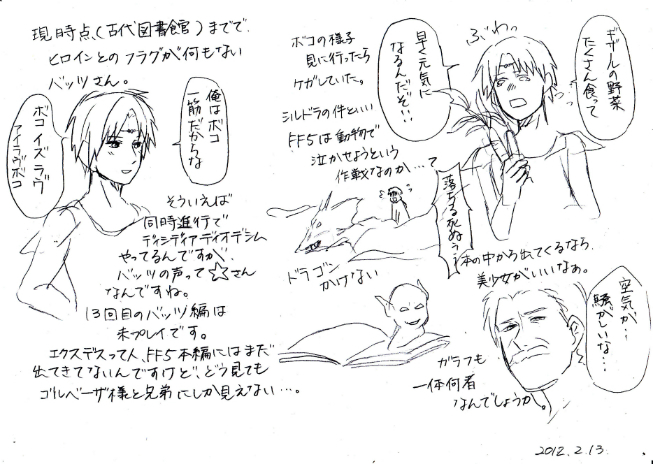 現時点(古代図書館)までで、
ヒロインとのフラグが何もない
バッツさん。
俺はボコ
一筋だからな
ボコイズラヴ
アイラヴボコ
そういえば
同時進行で
ディシディアデュオデシム
やってるんですが、
バッツの声って☆さん
なんですね。
13回目のバッツ編は
未プレイです。
エクスデスって人、FF5本編にはまだ
出てきてないんですけど、どう見ても
ゴルベーザ様と兄弟にしか見えない…。
ボコの様子
見に行ったら
ケガしていた。
シルドラの件といい
FF5は動物で
泣かせようという
作戦なのか…て
早く元気に
なるんだぞ!!
ぶわっ
ギザールの野菜
たくさん食って
落ちる死ぬぅぅ
ドラゴン
かけない
本の中から出てくるなら、
美少女がいいなぁ。
空気が…
騒がしいな…
ガラフも
一体何者
なんでしょうか。
2012.2.13.